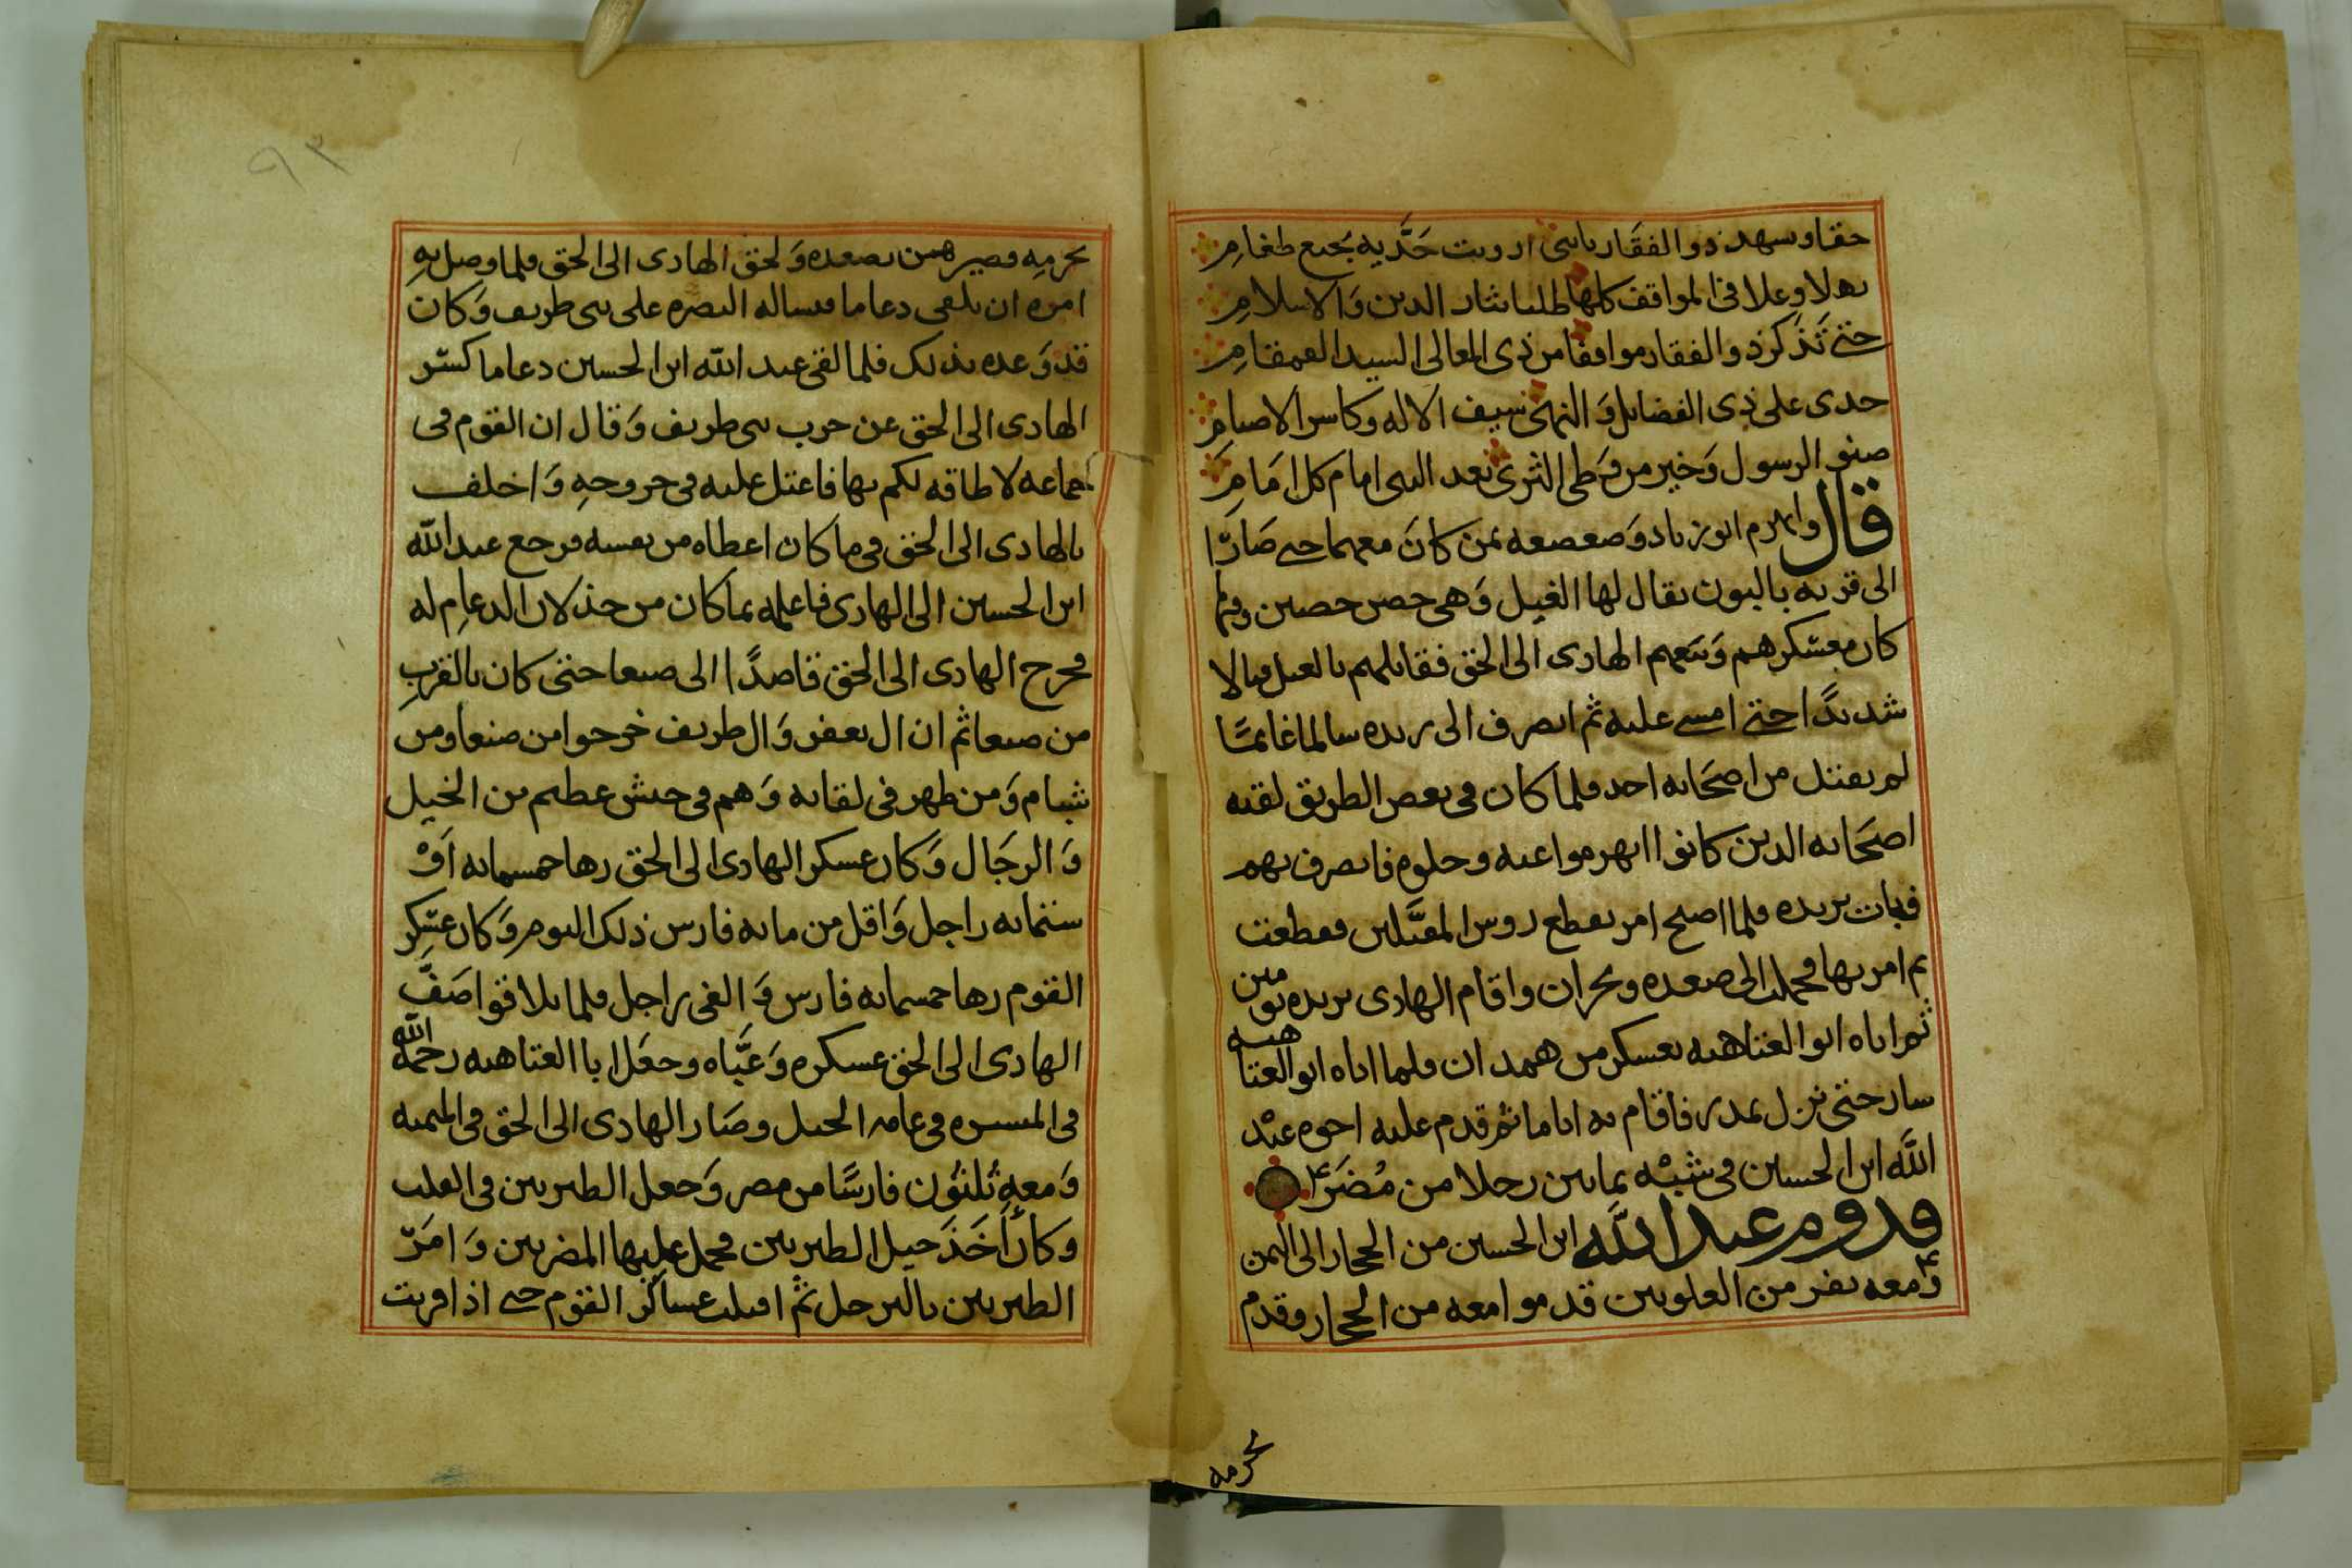 حقا وسهد ذو الفقار بانني ارويت حديه بجيع طغامِ
نهلا وعلا في المواقف كلها طلبا بثار الدين وَالاسلامِ
حتى تذكر ذو الفقار موافقا من ذي المعالي السيد القمقامِ
جدي علي ذي الفضايل وَالنهى سيف الاله وكاسر الاصنامِ
صنو الرسول وَخير من وَطي الثرى بعد النبي امام كل امَامِ
قال وانهزم ابو زياد وَصعصعه بمن كانَ معهما حتى صَارَا
الى قريه بالبون يقال لها الغيل وَهي حصن حصين وفيها
كان معسكرهم وَتبعهم الهادي الى الحق فقاتلهم بالغيل قتالا
شديدًا حتى امسى عليه ثم انصرف الى ريده سالما غانمًا
لم يقتل من اصحَابه احد فلما كان في بعض الطريق لقيه
اصحَابه الذين كانوا انهزموا عنه وخلوه فانصرف بهم
فبات بريده فلما اصبح امر بقطع روس المقتَّلين فقطعت
ثم امر بها فحملت الى صعده ونجران واقام الهادي بريده يومين
ثم اتاه ابو العتاهيه بعسكر من همدان فلما اتاه ابو العتاهيه
سار حتى نزل بمدر فاقام به اياما ثم قدم عليه اخوه عبْد
اللَّه ابن الحسين في شبيْه بمايين رجلا من مُضَر
قدوم عبد اللَّه ابن الحسين من الحجاز الى اليمن
وَمعه نفر من العلويين قدموا معه من الحجاز وقدم
بحرمه
٩٣
بحرمِه فصيرهمن بصعده وَلحق الهادي الى الحق فلما وصل بهِ
امره ان يلقى دعاما فيساله النصره على بني طريف وَكان
قد وَعده بذلك فلما لقي عبد اللّه ابن الحسين دعاما كسّر
الهادي الى الحق عن حرب بني طريف وَقال ان القوم في
جماعه لا طاقه لكم بها فاعتل عليه في خروجهِ وَاخلف
بالهادي الى الحق في ما كان اعطاه من نفسه فرجع عبد اللّه
ابن الحسين الى الهادي فاعلمه بما كان من خذلان الدعامِ له
فخرج الهادي الى الحق قاصدًا الى صنعا حتى كان بالقربِ
من صنعا ثم ان ال يعفر وَال طريف خرجوا من صنعا ومن
شبام وَمن ظهر في لقايه وَهم في جيش عظيم من الخيل
وَالرجَال وَكان عسكر الهادي الى الحق رها خمسمايه اَوْ
ستمايه راجل وَاقل من مايه فارس ذلك اليوم وَكان عسكر
القوم رها خمسمايه فارس وَالفي راجل فلما تلاقوا صَفَّ
الهادي الى الحق عسكره وَعَبَّاه وجعَل ابا العتاهيه رحمه اللّه
في الميسره في عامه الخيل وصَار الهادي الى الحق في الميمنه
وَمعهِ ثلثوُن فارسًا من مضر وَجعل الطبريين في القلب
وكان اَخَذَ خيل الطبريين فحمل عليها المضريين وَامَرَ
الطبريين بالترجل ثم اقبلت عساكر القوم حتى اذا قربت